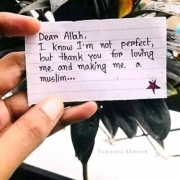 Dear Allah,
I know I'm not perfect,
but thank you for loving
me and making me a
muslim...